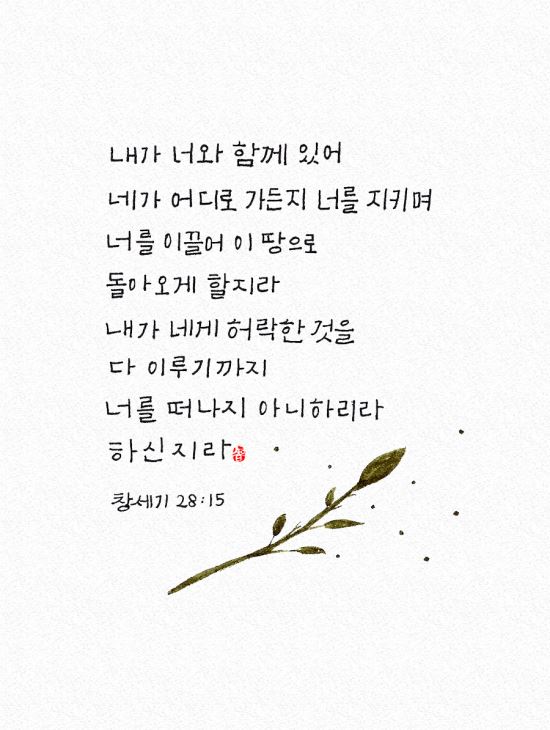 내가 너와 함께 있어
네가 어디로 가든지 너를 지키며
너를 이끌어 이 땅으로
돌아오게 할지라
내가 네게 허락한 것을
다 이루기까지
너를 떠나지 아니하리라
하신지라
창세기 28:15